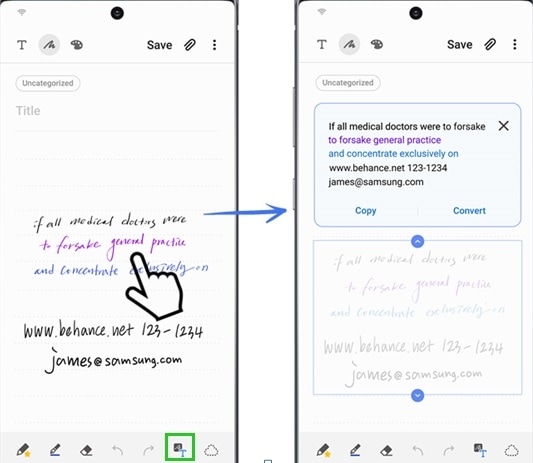 T Save
Uncategorized
Title
if all medical doctors were
to forsake general practice
and concentrate exclusively on
www.behance.net 123-1234
james@samsung.com
T
T Save
Uncategorized
If all medical doctors were to forsake
to forsake general practice
and concentrate exclusively on
www.behance.net 123-1234
james@samsung.com
Copy Convert
if all medical doctors were
to forsake general practice
and concentrate exclusively on
www.behance.net 123-1234
james@samsung.com
T